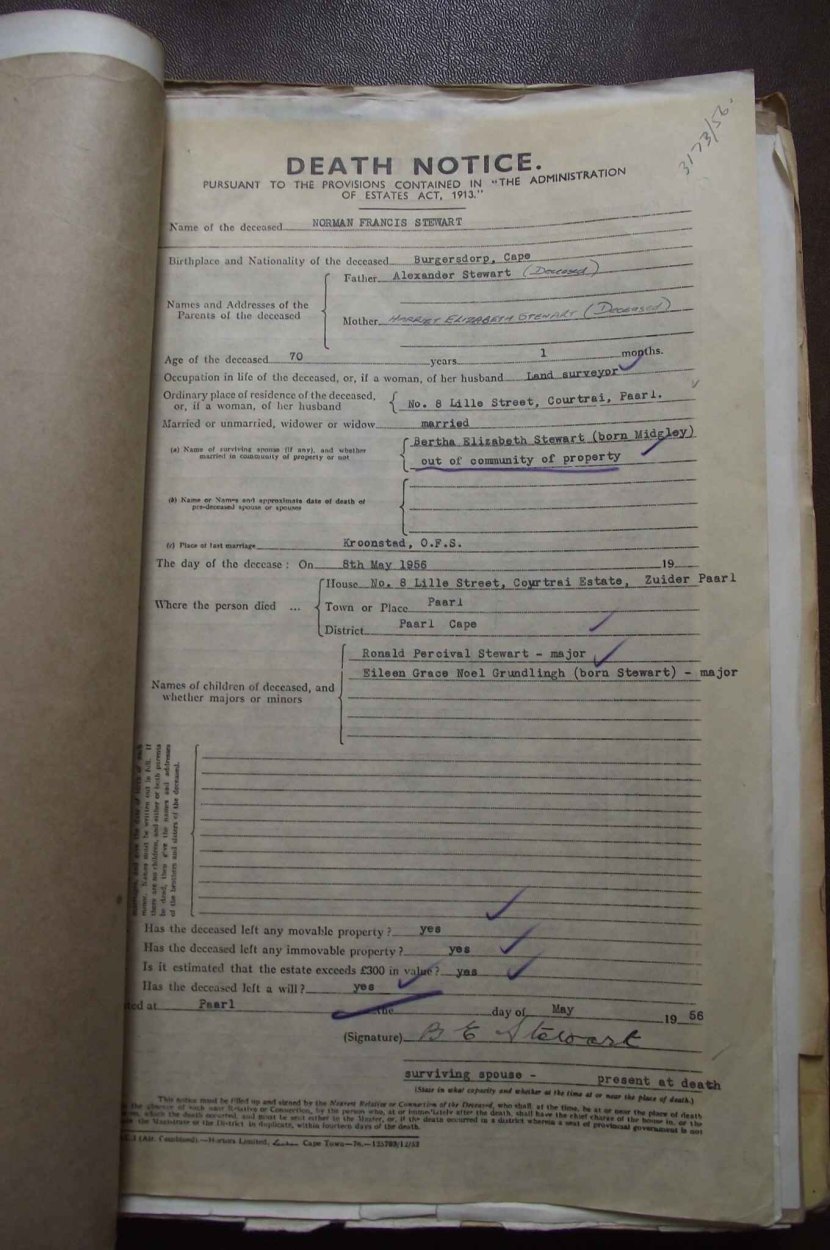 3173/56.
DEATH NOTICE.
PURSUANT TO THE PROVISIONS CONTAINED IN "THE ADMINISTRATION
OF ESTATES ACT, 1913."
Name of the deceased NORMAN FRANCIS STEWART
Birthplace and Nationality of the deceased Burgersdorp, Cape
Father Alexander Stewart (Deceased)
Names and Addresses of the
Parents of the deceased
Mother HARRIET ELIZABETH STEWART (Deceased)
Age of the deceased 70 years 1 months.
Occupation in life of the deceased, or, if a woman, of her husband Land surveyor
Ordinary place of residence of the deceased,
or, if a woman, of her husband No. 8 Lille Street, Courtrai, Paarl.
Married or unmarried, widower or widow married
(a) Name of surviving spouse (if any), and whether
married in community of property or not
Bertha Elizabeth Stewart (born Midgley)
out of community of property
(b) Name or Names and approximate date of death of
pre-deceased spouse or spouses
(c) Place of last marriage Kroonstad, O.F.S.
The day of the decease: On 8th May 1956 19
House No. 8 Lille Street, Courtrai Estate, Zuider Paarl
Where the person died ... Town or Place Paarl
District Paarl Cape
Ronald Percival Stewart - major
Eileen Grace Noel Grundlingh (born Stewart) - major
Names of children of deceased, and
whether majors or minors
name. Names must be written out in full. If
there are no children, and either or both parents
be dead, then give the names and addresses
of the brothers and sisters of the deceased.
Has the deceased left any movable property? yes
Has the deceased left any immovable property? yes
Is it estimated that the estate exceeds £300 in value? yes
Has the deceased left a will? yes
ted at Paarl the day of May 19 56
(Signature) B E Stewart
surviving spouse - present at death
(State in what capacity and whether at the time at or near the place of death.)
This notice must be filled up and signed by the Nearest Relative or Connection of the Deceased, who shall at the time, be at or near the place of death
the absence of such near Relative or Connection, by the person who, at or immediately after the death, shall have the chief charge of the house in, or the
which the death occurred, and must be sent either to the Master, or, if the death occurred in a district wherein a seat of provincial government is not
the Magistrate of the District in duplicate, within fourteen days of the death.
(Alt. Combined).—Hortors Limited, Cape Town—76.—125703/12/52